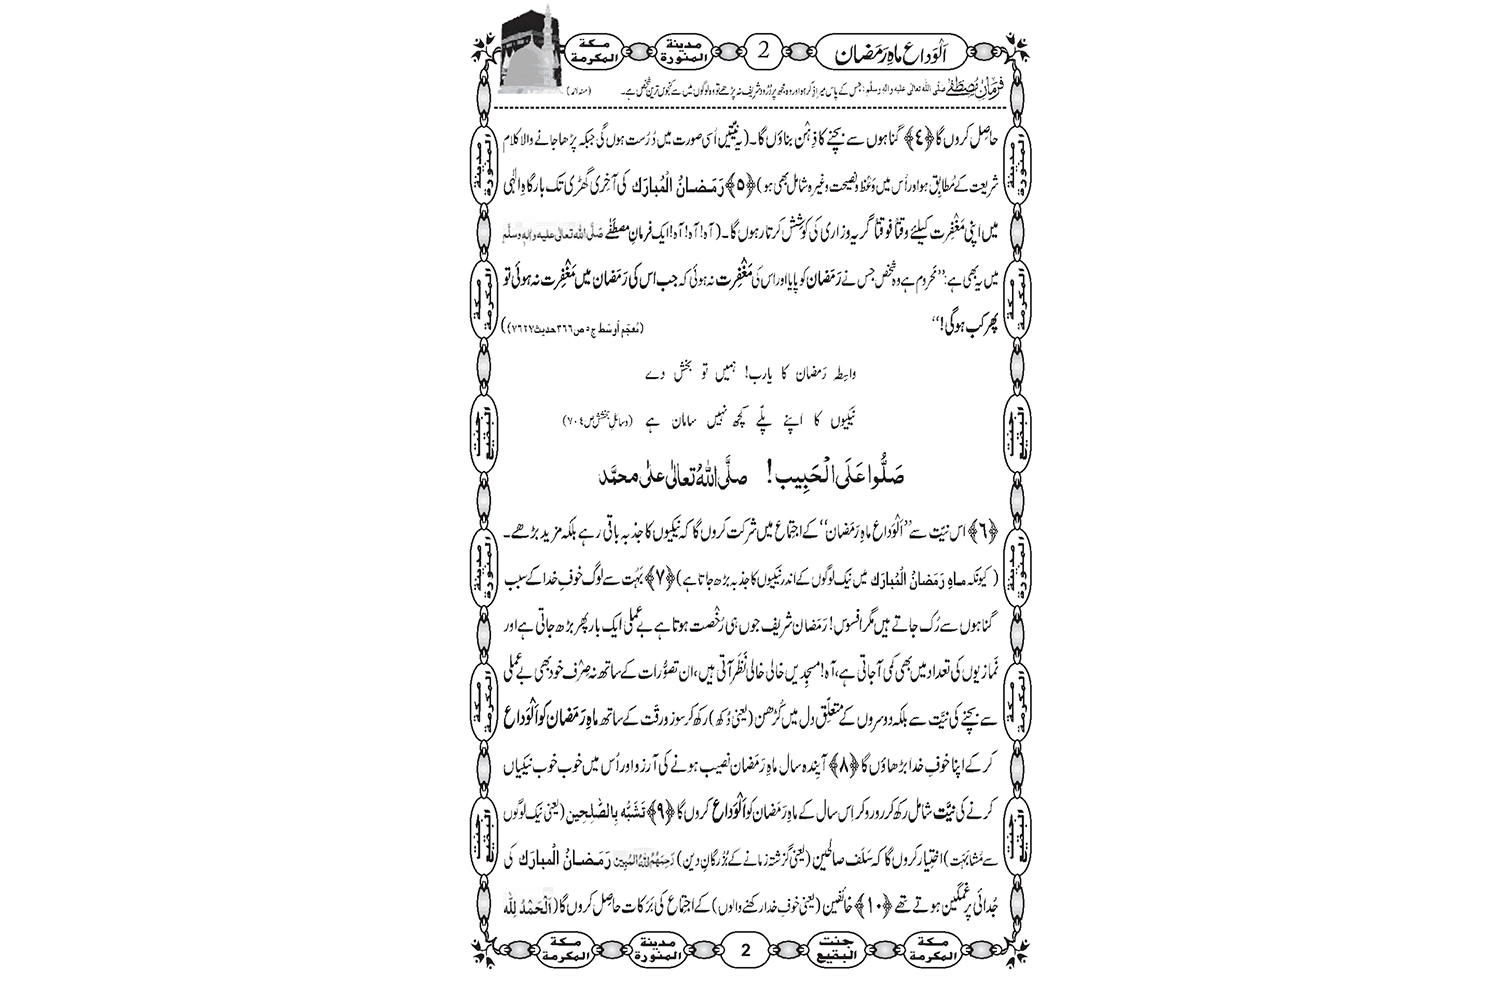 اَلْوَداع ماہِ رَمَضان
2
مدینۃ المنورۃ
مکۃ المکرمۃ
فرمانِ مُصطَفٰے صلَّی اللہ تعالٰی علیہ واٰلہٖ وسلَّم: جس کے پاس میرا ذِکر ہوا اور وہ مجھ پر دُرُود شریف نہ پڑھے تو وہ لوگوں میں سے کنجوس ترین شخص ہے۔ (مسند احمد)
حاصِل کروں گا ﴿٤﴾ گناہوں سے بچنے کا ذِہْن بناؤں گا۔ (یہ نیّتیں اُسی صورت میں دُرُست ہوں گی جبکہ پڑھا جانے والا کلام
شریعت کے مُطابِق ہو اور اُس میں وَعْظ و نصیحت وغیرہ شامل بھی ہو) ﴿٥﴾ رَمَضانُ الْمُبارَک کی آخِری گھڑی تک بارگاہِ الٰہی
میں اپنی مَغْفِرت کیلئے وقتاً فوقتاً گریہ و زاری کی کوشِش کرتا رہوں گا۔ (آہ! آہ! آہ! ایک فرمانِ مصطَفٰے صَلَّی اللہ تعالٰی علیہ واٰلہٖ وسلَّم
میں یہ بھی ہے: ’’محروم ہے وہ شخص جس نے رَمَضان کو پایا اور اس کی مَغْفِرت نہ ہوئی کہ جب اس کی رَمَضان میں مَغْفِرت نہ ہوئی تو
پھر کب ہوگی!‘‘ (مُعجَم اَوسَط ج٥ ص٣٦٦ حدیث ٧٦٢٧))
واسِطہ رَمَضان کا یارب! ہمیں تو بخش دے
نیکیوں کا اپنے پلّے کچھ نہیں سامان ہے (وسائلِ بخشش ص٧٠٤)
صَلُّوا عَلَی الْحَبِیب! صلَّی اللہُ تعالٰی علٰی محمَّد
﴿٦﴾ اس نیّت سے ’’اَلْوَداع ماہِ رَمَضان‘‘ کے اجتماع میں شرکت کروں گا کہ نیکیوں کا جذبہ باقی رہے بلکہ مزید بڑھے۔
(کیونکہ ماہِ رَمَضانُ الْمُبارَک میں نیک لوگوں کے اندر نیکیوں کا جذبہ بڑھ جاتا ہے) ﴿٧﴾ بَہُت سے لوگ خوفِ خدا کے سبب
گناہوں سے رُک جاتے ہیں مگر افسوس! رَمَضان شریف جوں ہی رُخْصت ہوتا ہے بے عملی ایک بار پھر بڑھ جاتی ہے اور
نَمازیوں کی تعداد میں بھی کمی آجاتی ہے، آہ! مسجِدیں خالی خالی نَظَر آتی ہیں، ان تصوُّرات کے ساتھ نہ صِرْف خود بھی بے عملی
سے بچنے کی نیّت سے بلکہ دوسروں کے متعلِّق دل میں کُڑھن (یعنی دُکھ) رکھ کر سوز و رِقّت کے ساتھ ماہِ رَمَضان کو اَلْوَداع
کر کے اپنا خوفِ خدا بڑھاؤں گا ﴿٨﴾ آیندہ سال ماہِ رَمَضان نصیب ہونے کی آرزو اور اُس میں خوب خوب نیکیاں
کرنے کی نیّت شامل رکھ کر رو رو کر اِس سال کے ماہِ رَمَضان کو اَلْوَداع کروں گا ﴿٩﴾ تَشَبُّہ بِالصّٰلِحِین (یعنی نیک لوگوں
سے مُشابَہَت) اختِیار کروں گا کہ سَلَف صالحین (یعنی گزشتہ زمانے کے بُزُرگانِ دین) رَحِمَہُمُ اللہُ المُبِین رَمَضانُ الْمُبارَک کی
جُدائی پر غمگین ہوتے تھے ﴿١٠﴾ خائفین (یعنی خوفِ خدا رکھنے والوں) کے اجتماع کی بَرَکات حاصِل کروں گا (اَلْحَمْدُ لِلّٰہ
مکۃ المکرمۃ
جنت البقیع
2
مدینۃ المنورۃ
مکۃ المکرمۃ